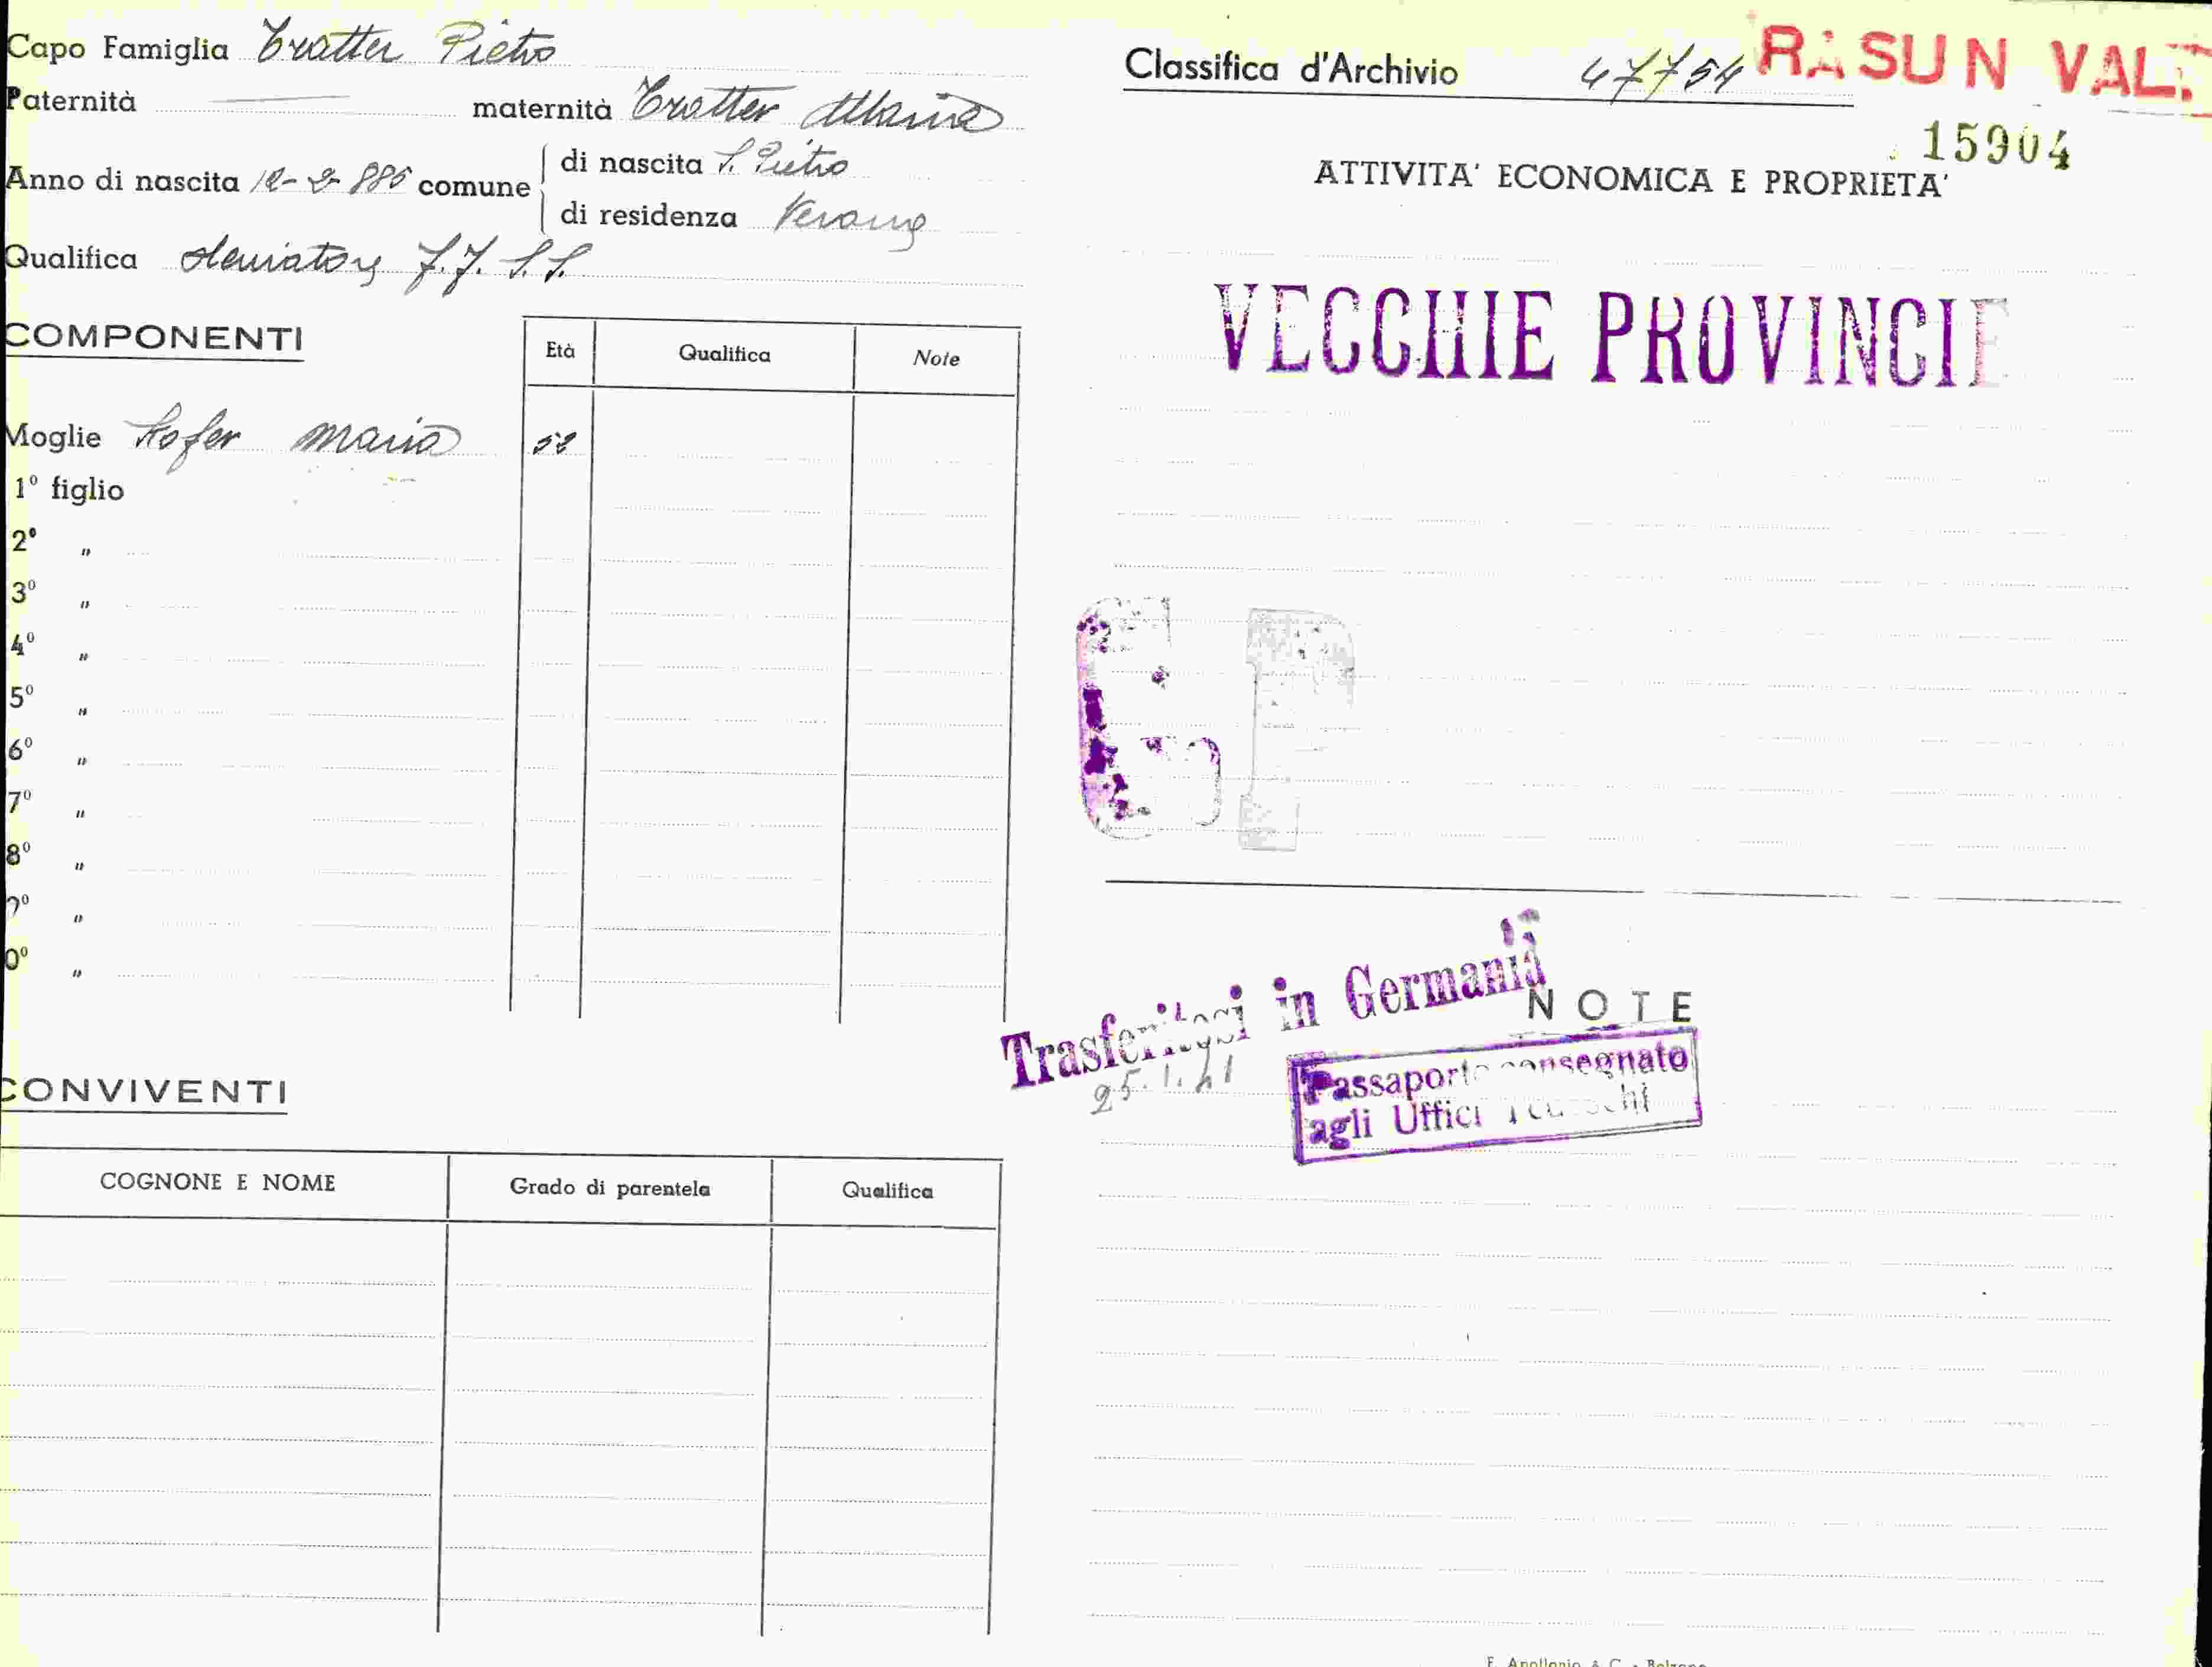 Capo Famiglia Tratter Pietro
Paternità maternità Tratter Maria
Anno di nascita 12-2-886 comune
di nascita S. Pietro
di residenza Verona
Qualifica deviatore F.F. S.S.
COMPONENTI
Età Qualifica Note
Moglie Hofer Maria 52
1° figlio
2° "
3° "
4° "
5° "
6° "
7° "
8° "
9° "
0° "
CONVIVENTI
COGNONE E NOME Grado di parentela Qualifica
Classifica d'Archivio 47754 RASUN VAL.
15904
ATTIVITA' ECONOMICA E PROPRIETA'
VECCHIE PROVINCIE
Trasferitosi in Germania
25.1.41
NOTE
Passaporto consegnato
agli Uffici Tedeschi
F. Apollonio & C. - Bolzano